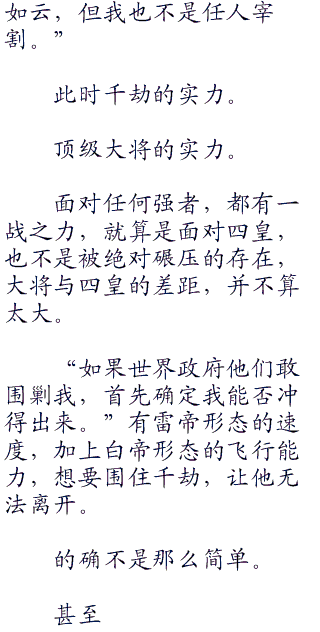 如云，但我也不是任人宰
割。”
此时千劫的实力。
顶级大将的实力。
面对任何强者，都有一
战之力，就算是面对四皇，
也不是被绝对碾压的存在，
大将与四皇的差距，并不算
太大。
“如果世界政府他们敢
围剿我，首先确定我能否冲
得出来。”有雷帝形态的速
度，加上白帝形态的飞行能
力，想要围住千劫，让他无
法离开。
的确不是那么简单。
甚至